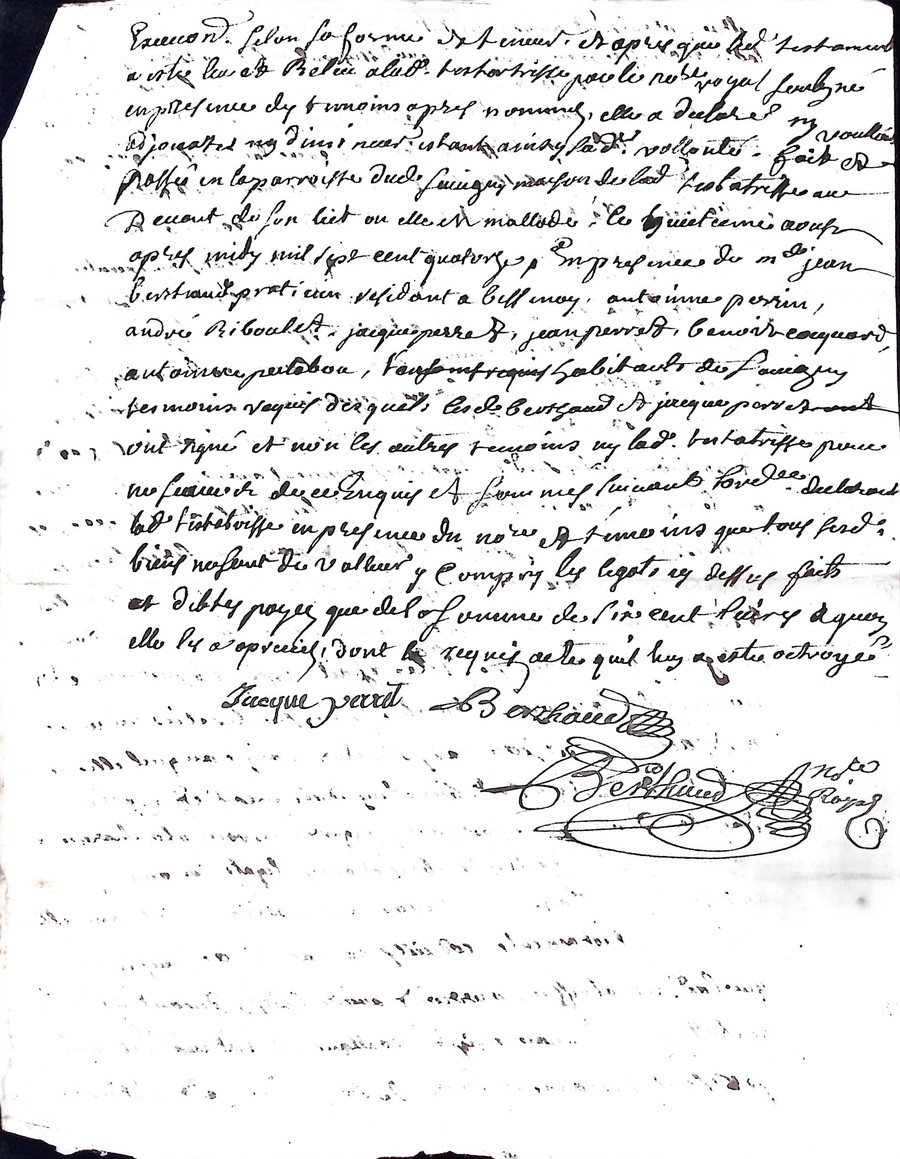 selon sa forme et teneur, et apres que led. testament
a esté leu et Releu a lad. testatrisse par le no.re royal soubzné
en presence des temoins apres nommes, elle a declaré ny voulloir
adjouxter ny diminuer estant ainsy sad. vollonté. fait et
Passé en la parroisse dud. Savigny maison de lad. testatrisse au
Devant de son liet ou elle est mallade, le huictieme aoust
apres midy mil sept cent quatorze, En presence de me jean
berthaud praticien residant a bessenay, antoinne perrin,
andré Riboulet, jacque perret, jean perret, benoist coquard,
antoinne habitants de Savigny
tesmoins requis desquels lesd. berthaud et jacque perret
ont signé et non les autres temoins ny lad. testatrisse pour
ne scavoir de ce Enquis et sommes suivant l'ord.ce declarant
lad. testatrisse en presence du no.re et temoins que tous sesd.
biens ne sont de valleur y Compris les legats cy dessus faits
et dibtes payez que de la somme de six cent livres a quoy
elle les a dont le requis acte qu'il luy a esté octroyé
Jacque perret Berthaud
Berthaud n.re Royal